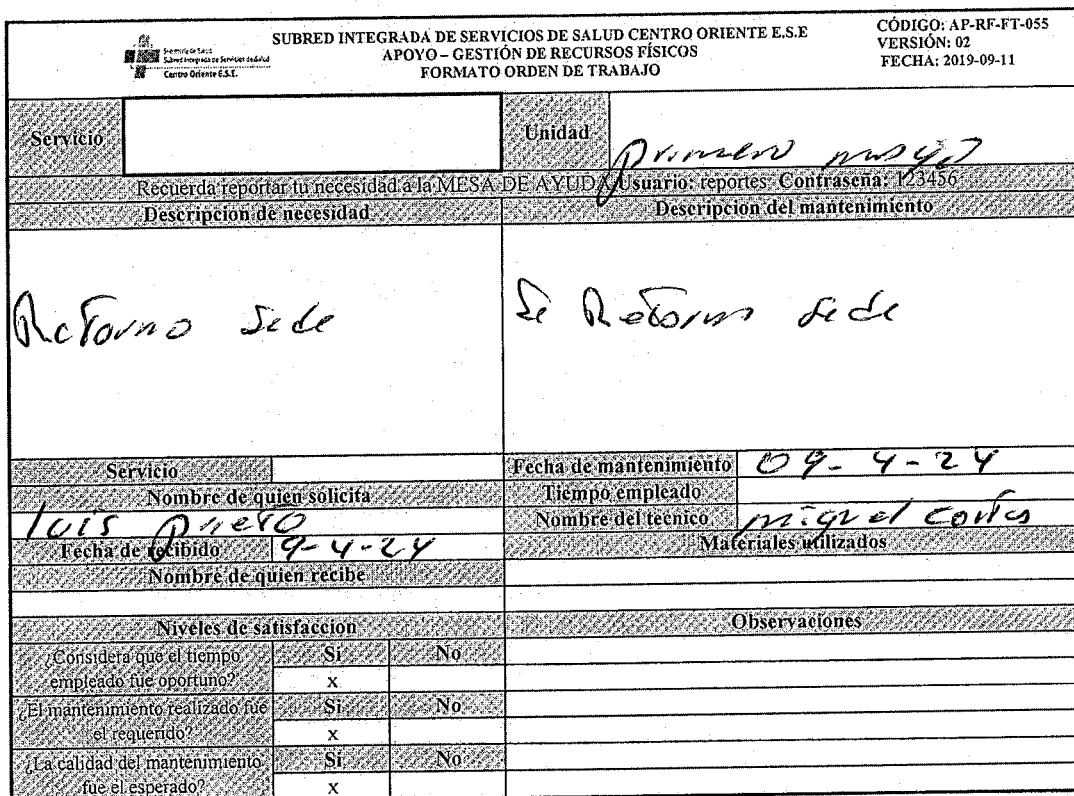 Secretaría de Salud
Subred Integrada de Servicios de Salud
Centro Oriente E.S.E.
SUBRED INTEGRADA DE SERVICIOS DE SALUD CENTRO ORIENTE E.S.E
APOYO – GESTIÓN DE RECURSOS FÍSICOS
FORMATO ORDEN DE TRABAJO
CÓDIGO: AP-RF-FT-055
VERSIÓN: 02
FECHA: 2019-09-11
Servicio
Unidad primero mayo
Recuerda reportar tu necesidad a la MESA DE AYUDA Usuario: reportes Contraseña: 123456
Descripcion de necesidad
Descripcion del mantenimiento
Retorno Sede
Se Retorno sede
Servicio
Fecha de mantenimiento 09-4-24
Nombre de quien solicita
Tiempo empleado
luis
Nombre del técnico miguel cortes
Fecha de recibido 9-4-24
Materiales utilizados
Nombre de quien recibe
Niveles de satisfaccion
Observaciones
¿Considera que el tiempo empleado fue oportuno? Si No
x
¿El mantenimiento realizado fue el requerido? Si No
x
¿La calidad del mantenimiento fue el esperado? Si No
x